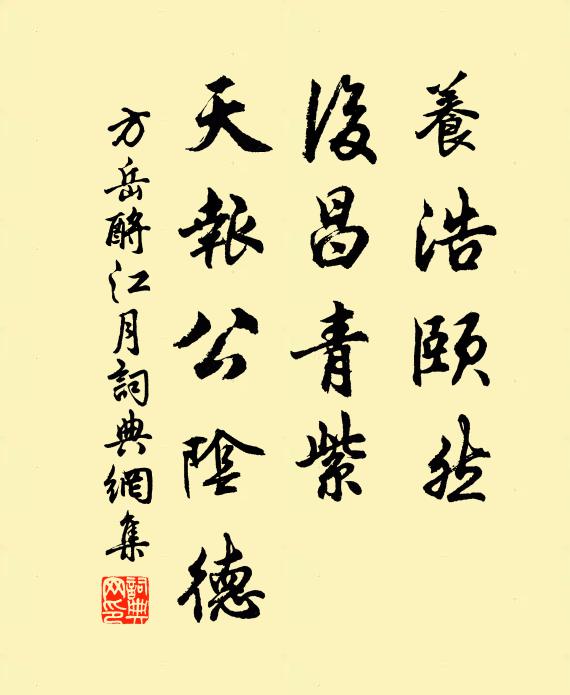 養浩頤然
後昌青紫
天報公陰德
方岳酹江月詞典網集
詞典网印